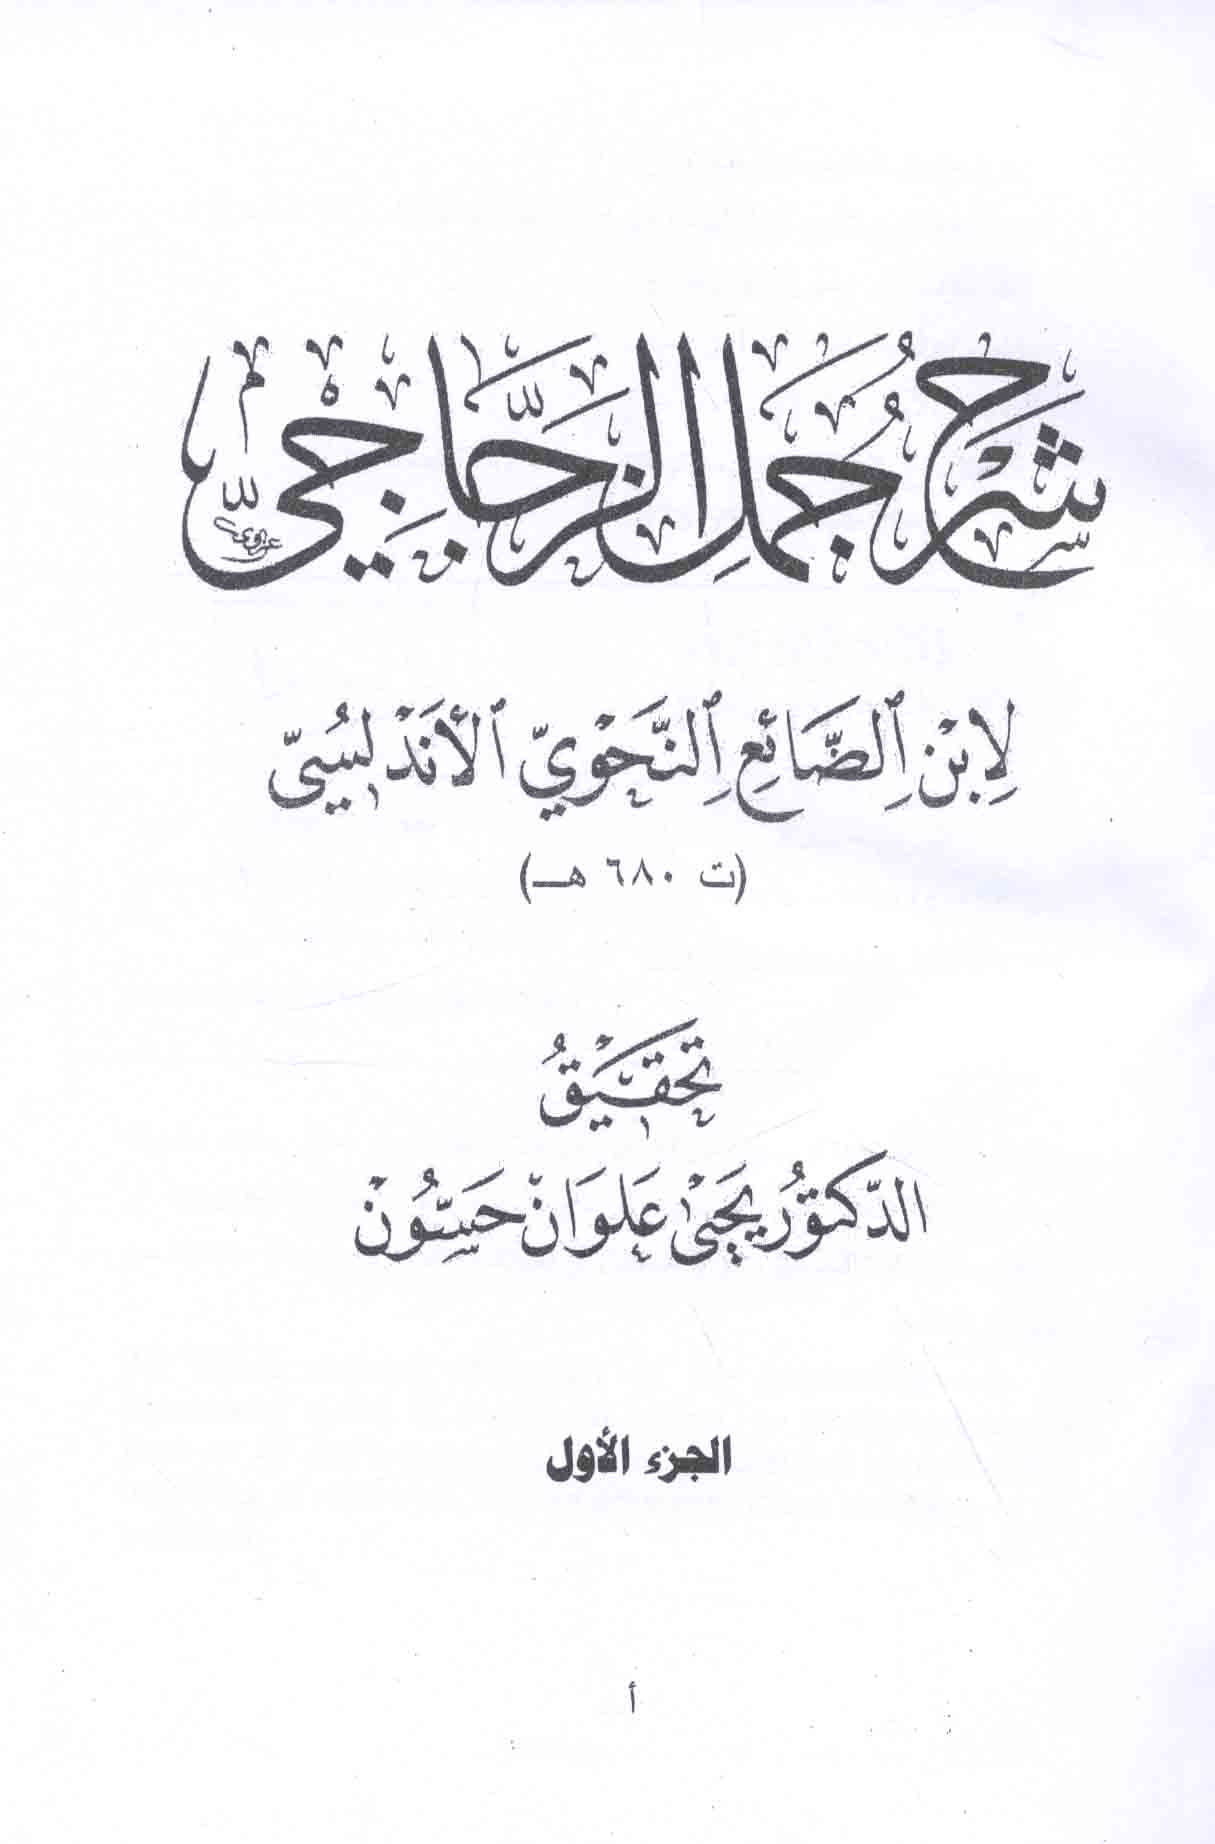 شرح جمل الزجاجي
لِابْنِ الضَّائِعِ النَّحْوِيّ الأَنْدَلُسِيّ
(ت ٦٨٠ هـ)
تحقيق
الدّكتور يحيى علوان حسّون
الجزء الأول
أ